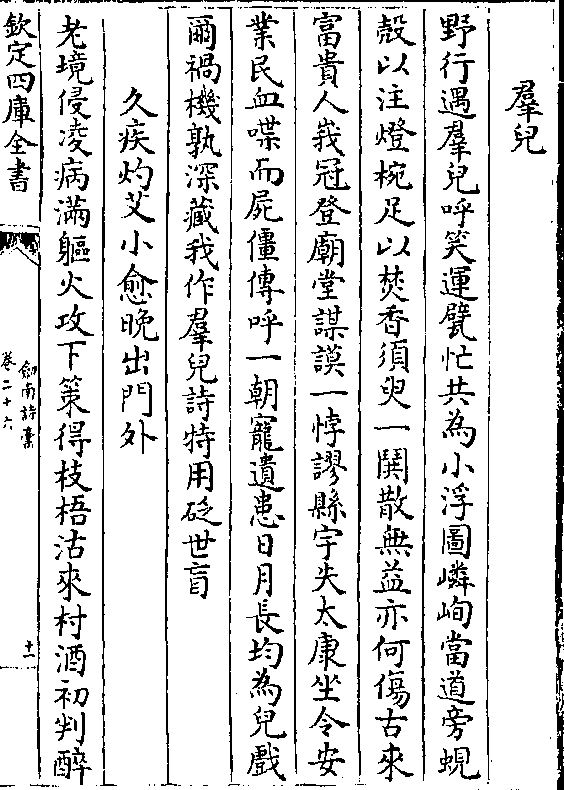 羣兒
野行遇羣兒呼笑運甓忙共為小浮圖嶙峋當道旁蜆
殼以注燈椀足以焚香須臾一鬨散無益亦何傷古來
富貴人峩冠登廟堂謀謨一悖謬縣宇失太康坐令安
業民血喋而屍僵傳呼一朝寵遺患日月長均為兒戲
爾禍機孰深藏我作羣兒詩特用砭世盲
久疾灼艾小愈晚出門外
老境侵凌病滿軀火攻下策得枝梧沽來村酒初判醉
欽定四庫全書
劒南詩藁
卷二十六
十一